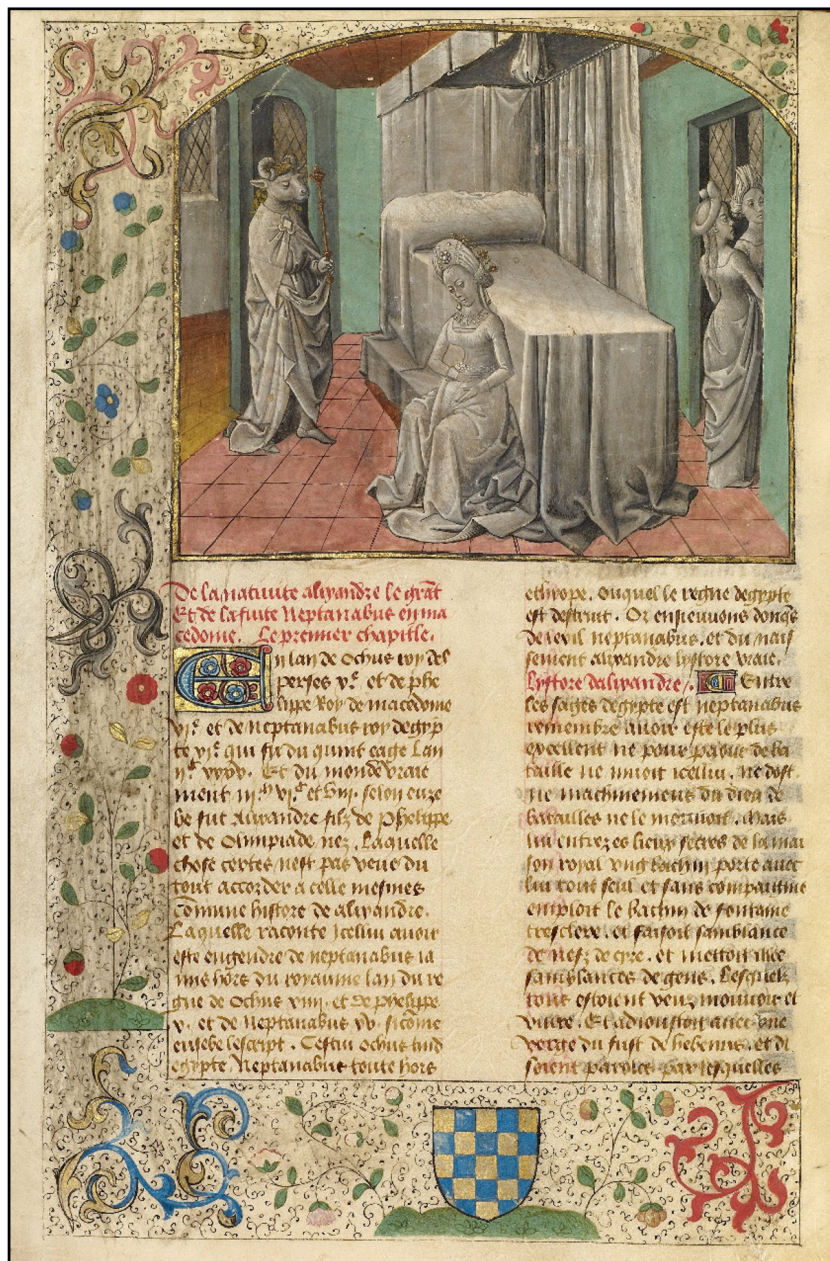 De la natiuite alixandre le grãt
Et de la fuite Neptanabus en ma
cedome. Le premier chapitle.
En lan de Ochus roy des
perses vᵉ. et de phe
lippe Roy de macedoine
viᵉ. et de neptanabus roy degyp
te viᵉ. qui fu du quint eage Lan
Et du monde vraie
ment selon euze
be fut Alixandre filz de Phelippe
et de Olimpiade nez. Laquelle
chose certes nest pas veue du
tout accorder a celle mesmes
cõmune histore de alixandre.
Laquelle raconte Icellui auoir
este engendre de neptanabus ia
mis hors du royaume lan du re
gne de Ochus xiiii. et de phelippe
v. et de Neptanabus xv. sicõme
eusebe lescript. Cestui ochus
egypte Neptanabus toute hors
ethyope. ouquel le regne degypte
est destruit. Or ensieuuons donqs
de lexil neptanabus. et du nais
sement alixandre lystore vraie.
Lystore dalixandre. Entre
les sages degypte est neptanabus
remembre auoir este le plus
excellent ne pour paour de ba
taille ne muoit icellui. ne dost
ne machinement du dieu de
batailles ne le mouuoit. Mais
lui entrez es lieux secres de la mai
son royal vng bachin porte auec
lui tout seul et sans compaignie
emploit le bachin de fontaine
tresclere. et faisoit samblance
de nefz de cyre. et mettoit
samblances de gens. Lesquelz
tous estoient veuz mouuoir et
viure. Et adioustoit auec vne
verge du fust de hebenus. et di
soient paroles par lesquelles